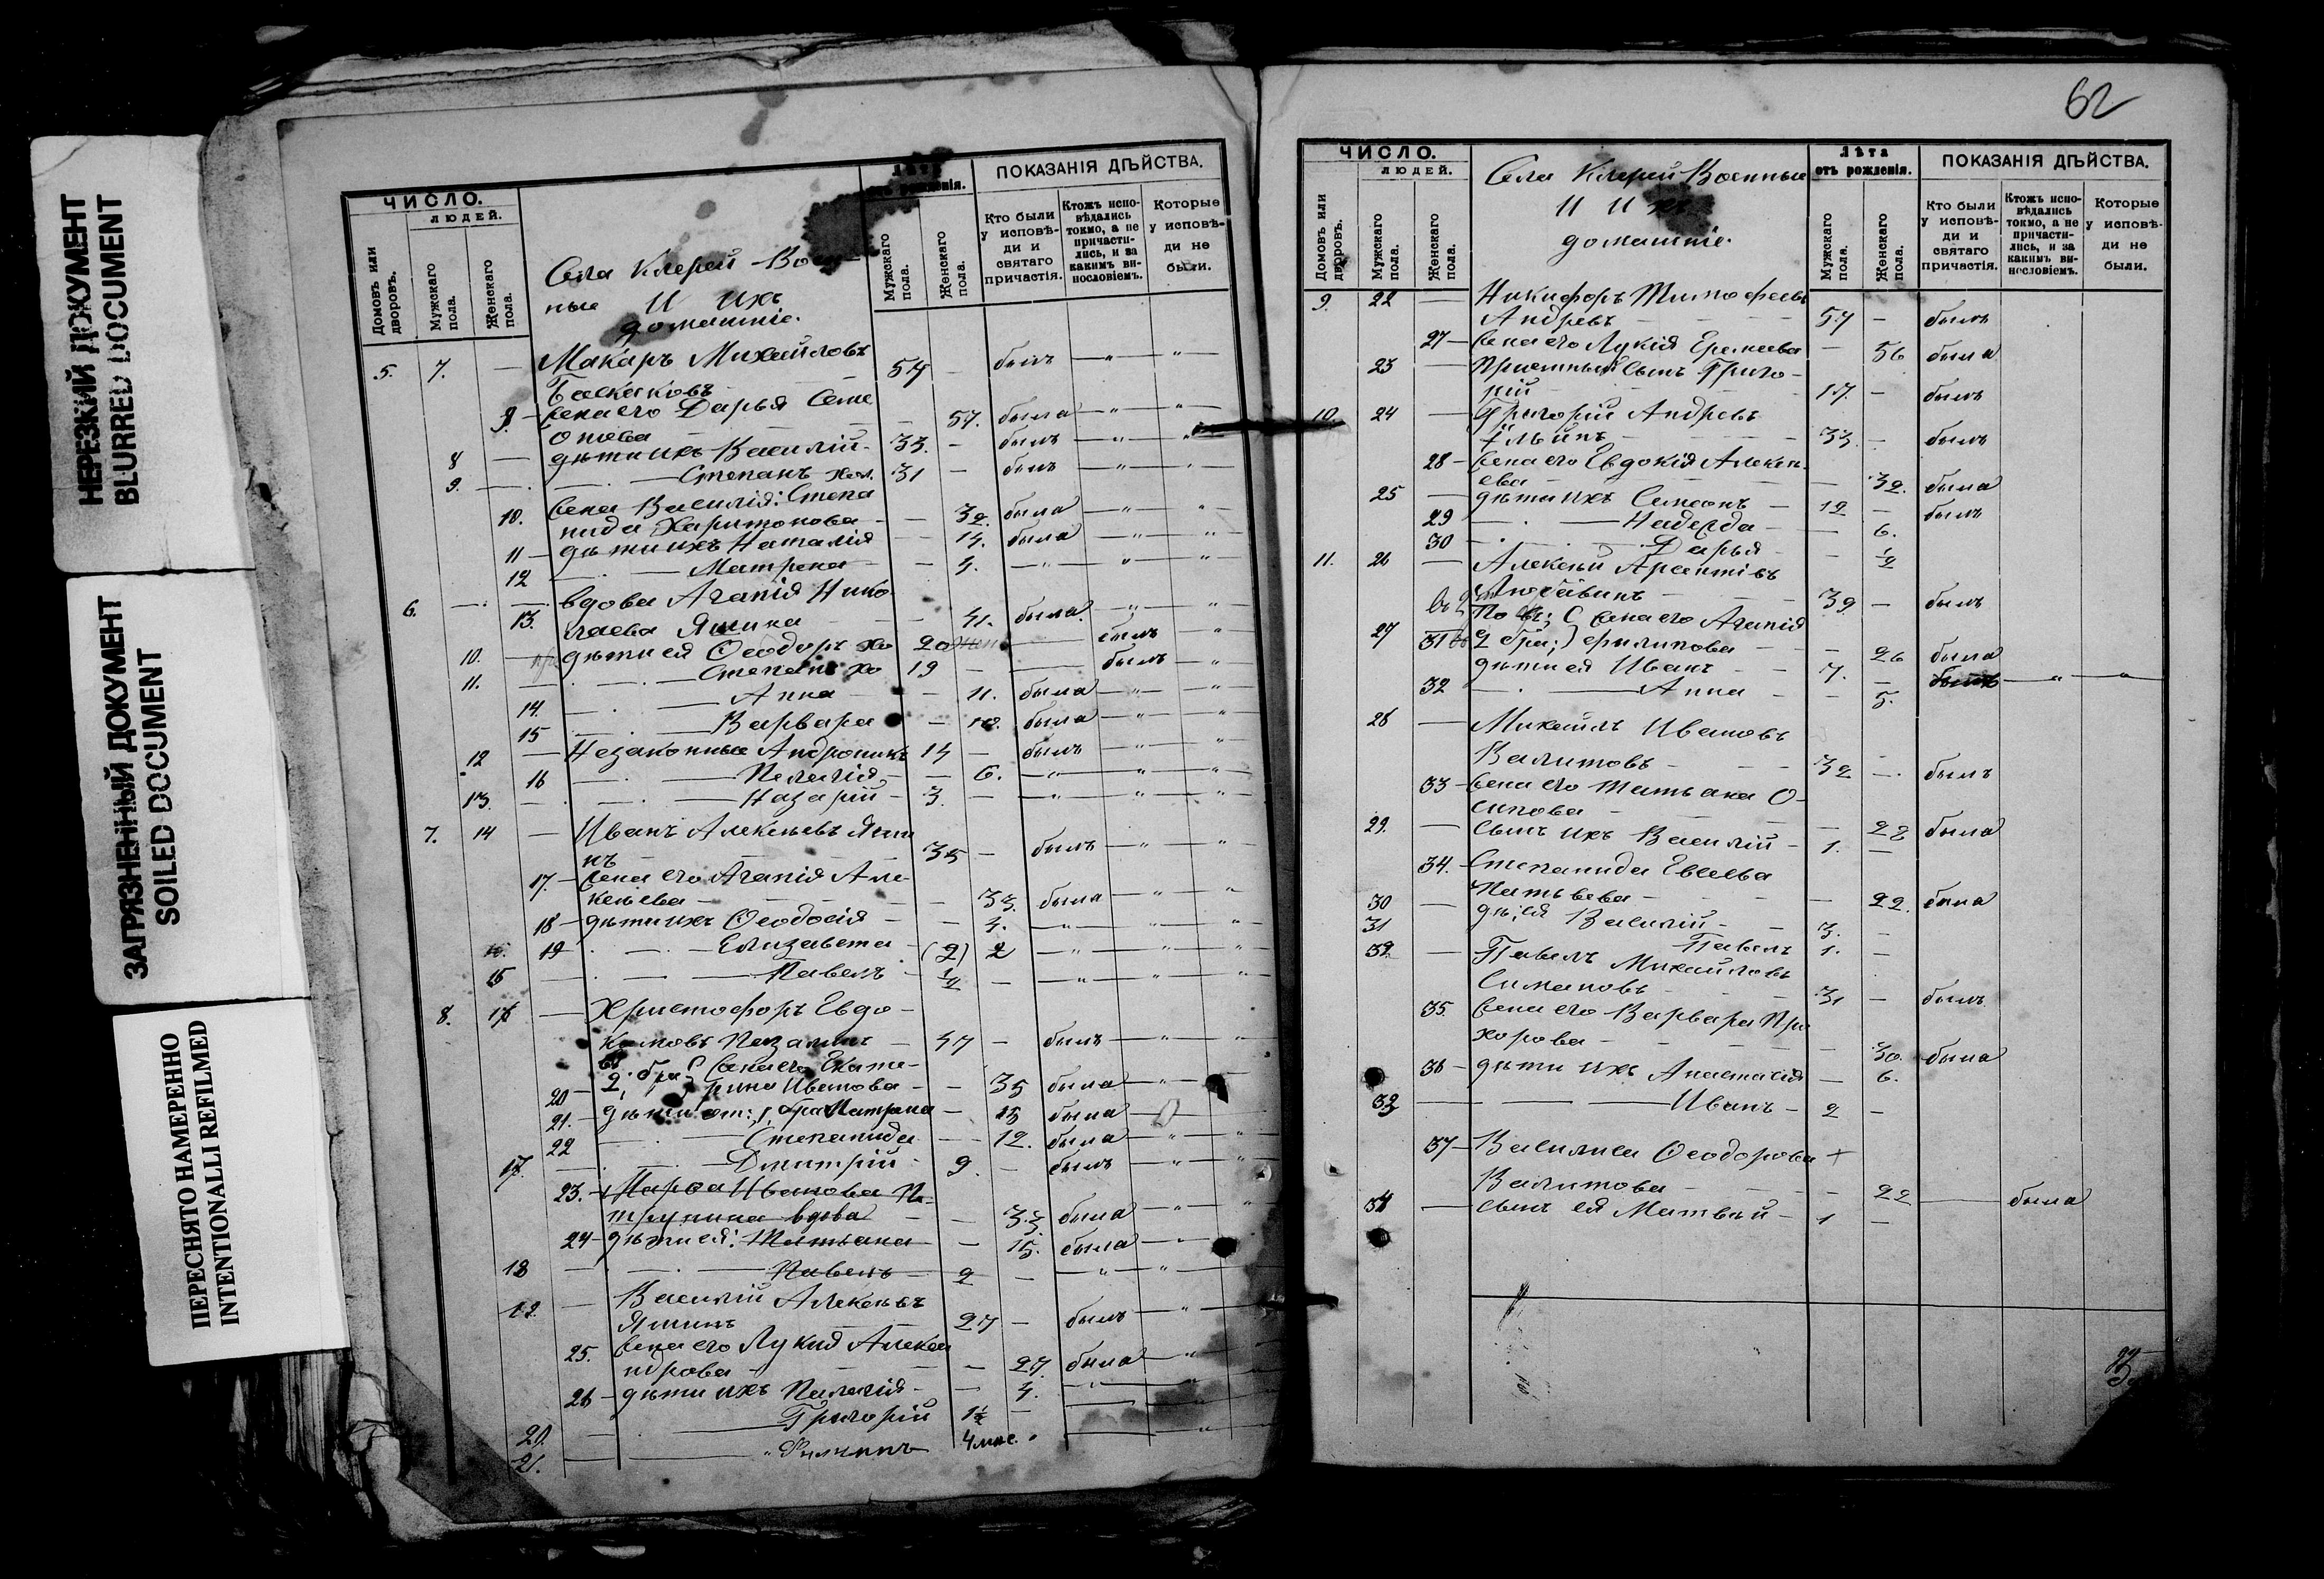 НЕРЕЗКИЙ ДОКУМЕНТ
BLURRED DOCUMENT
ЗАГРЯЗНЕННЫЙ ДОКУМЕНТ
SOILED DOCUMENT
ПЕРЕСНЯТО НАМЕРЕННО
INTENTIONALLI REFILMED
ЧИСЛО.
ЛЮДЕЙ.
Домовъ или дворовъ.
Мужскаго пола.
Женскаго пола.
Села Клерей Воен-
ные И ихъ
домашніе.
Лѣта
отъ рожденія.
Мужскаго пола.
Женскаго пола.
ПОКАЗАНІЯ ДѢЙСТВА.
Кто были у исповѣ-ди и святаго причастія.
Ктожъ испо-вѣдались токмо, а не причасти-лись, и за какимъ ви-нословіемъ.
Которые у исповѣ-ди не были.
5. 7. — Макаръ Михайловъ
Баскаковъ 54 — былъ
9. — Жена его Дарья Семе
онова — 57. была
8 — дѣти ихъ Василій 33. — былъ
9. — Степанъ хол. 31 — былъ
10. Жена Василія: Степа
нида Харитонова — 32. была
11 — дѣти ихъ Наталія — 14. была
12 — Матрена — 4.
6. — вдова Агапія Нико
13. лаева Яшина — 41. была
10. — дѣти ея Ѳеодоръ хо 20 былъ
11. — Степанъ хо 19 — былъ
14. — Анна — 11. была
15 — Варвара — 10. была
12 — Незаконные Андроникъ 14 — былъ
16 — Пелагія — 6.
13. — Назарій 3. —
7. 14 — Иванъ Алексѣевъ Яши
нъ 35 — былъ
17. — Жена его Агапія Але-
ксѣева — 33. была
18 — дѣти ихъ Ѳеодосія — 4.
19 — Елизавета (2) 2
15 — Павелъ ½ —
8. 16 — Христофоръ Евдо-
кимовъ 47 — былъ
2. бра Жена его Екате-
20 — рина Иванова — 35 была
21. — дѣти от: 1 бра Матрена — 15 была
22 — Степанида — 12. была
17. — Дмитрій 9. — былъ
23. — Марѳа Иванова Па-
трунина вдова — 33. была
24 — дѣти ея: Татьяна — 15. была
18 — Павелъ 2 —
19. — Василій Алексѣевъ
Яшинъ 27 — былъ
25. Жена его Лукия Алекса
ндрова — 27. была
26 — дѣти ихъ Пелагія — 4.
20. — Григорій 1½ —
21. — Филиппъ 4 мѣс.
62
ЧИСЛО.
ЛЮДЕЙ.
Домовъ или дворовъ.
Мужскаго пола.
Женскаго пола.
Села Клерей Военные
И ихъ
домашніе.
Лѣта
отъ рожденія.
Мужскаго пола.
Женскаго пола.
ПОКАЗАНІЯ ДѢЙСТВА.
Кто были у исповѣ-ди и святаго причастія.
Ктожъ испо-вѣдались токмо, а не причасти-лись, и за какимъ ви-нословіемъ.
Которые у исповѣ-ди не были.
9. 22 — Никифоръ Тимофеевъ
Андревъ 57 — былъ
27 — Жена его Лукія Еремеева — 56 была
23 — Приемный Сынъ Григо-
рій 17. — былъ
10. 24 — Григорій Андревъ
Ильинъ 33 — былъ
28 — Жена его Евдокія Алексѣ-
ева — 32. была
25 — дѣти ихъ Симеонъ 12 — былъ
29 — Надежда — 6.
30 — Дарья — ½
11. 26 — Алексѣй Арсентіевъ
39 — былъ
Жена его Агапія
31 2 бра; Филипова — 26 была
27 дѣти ея Иванъ 7. —
32 — Анна — 5.
28 — Михаилъ Ивановъ
Валитовъ 32 — былъ
33 — Жена его Татьяна О-
сипова — 28 была
29. — сынъ ихъ Василій 1. —
34. — Степанида Евсеева
Матвеева — 22. была
30 — дѣ: ея Василій 3. —
31 Павелъ 1. —
32 — Павелъ Михайловъ
Симановъ 31 — былъ
35. Жена его Варвара Про
хорова — 30. была
36 — дѣти ихъ Анастасія — 6.
33 — Иванъ 2 —
37 — Василиса Ѳеодорова +
Валитова — 22 — была
34 — сынъ ея Матвѣй 1 —